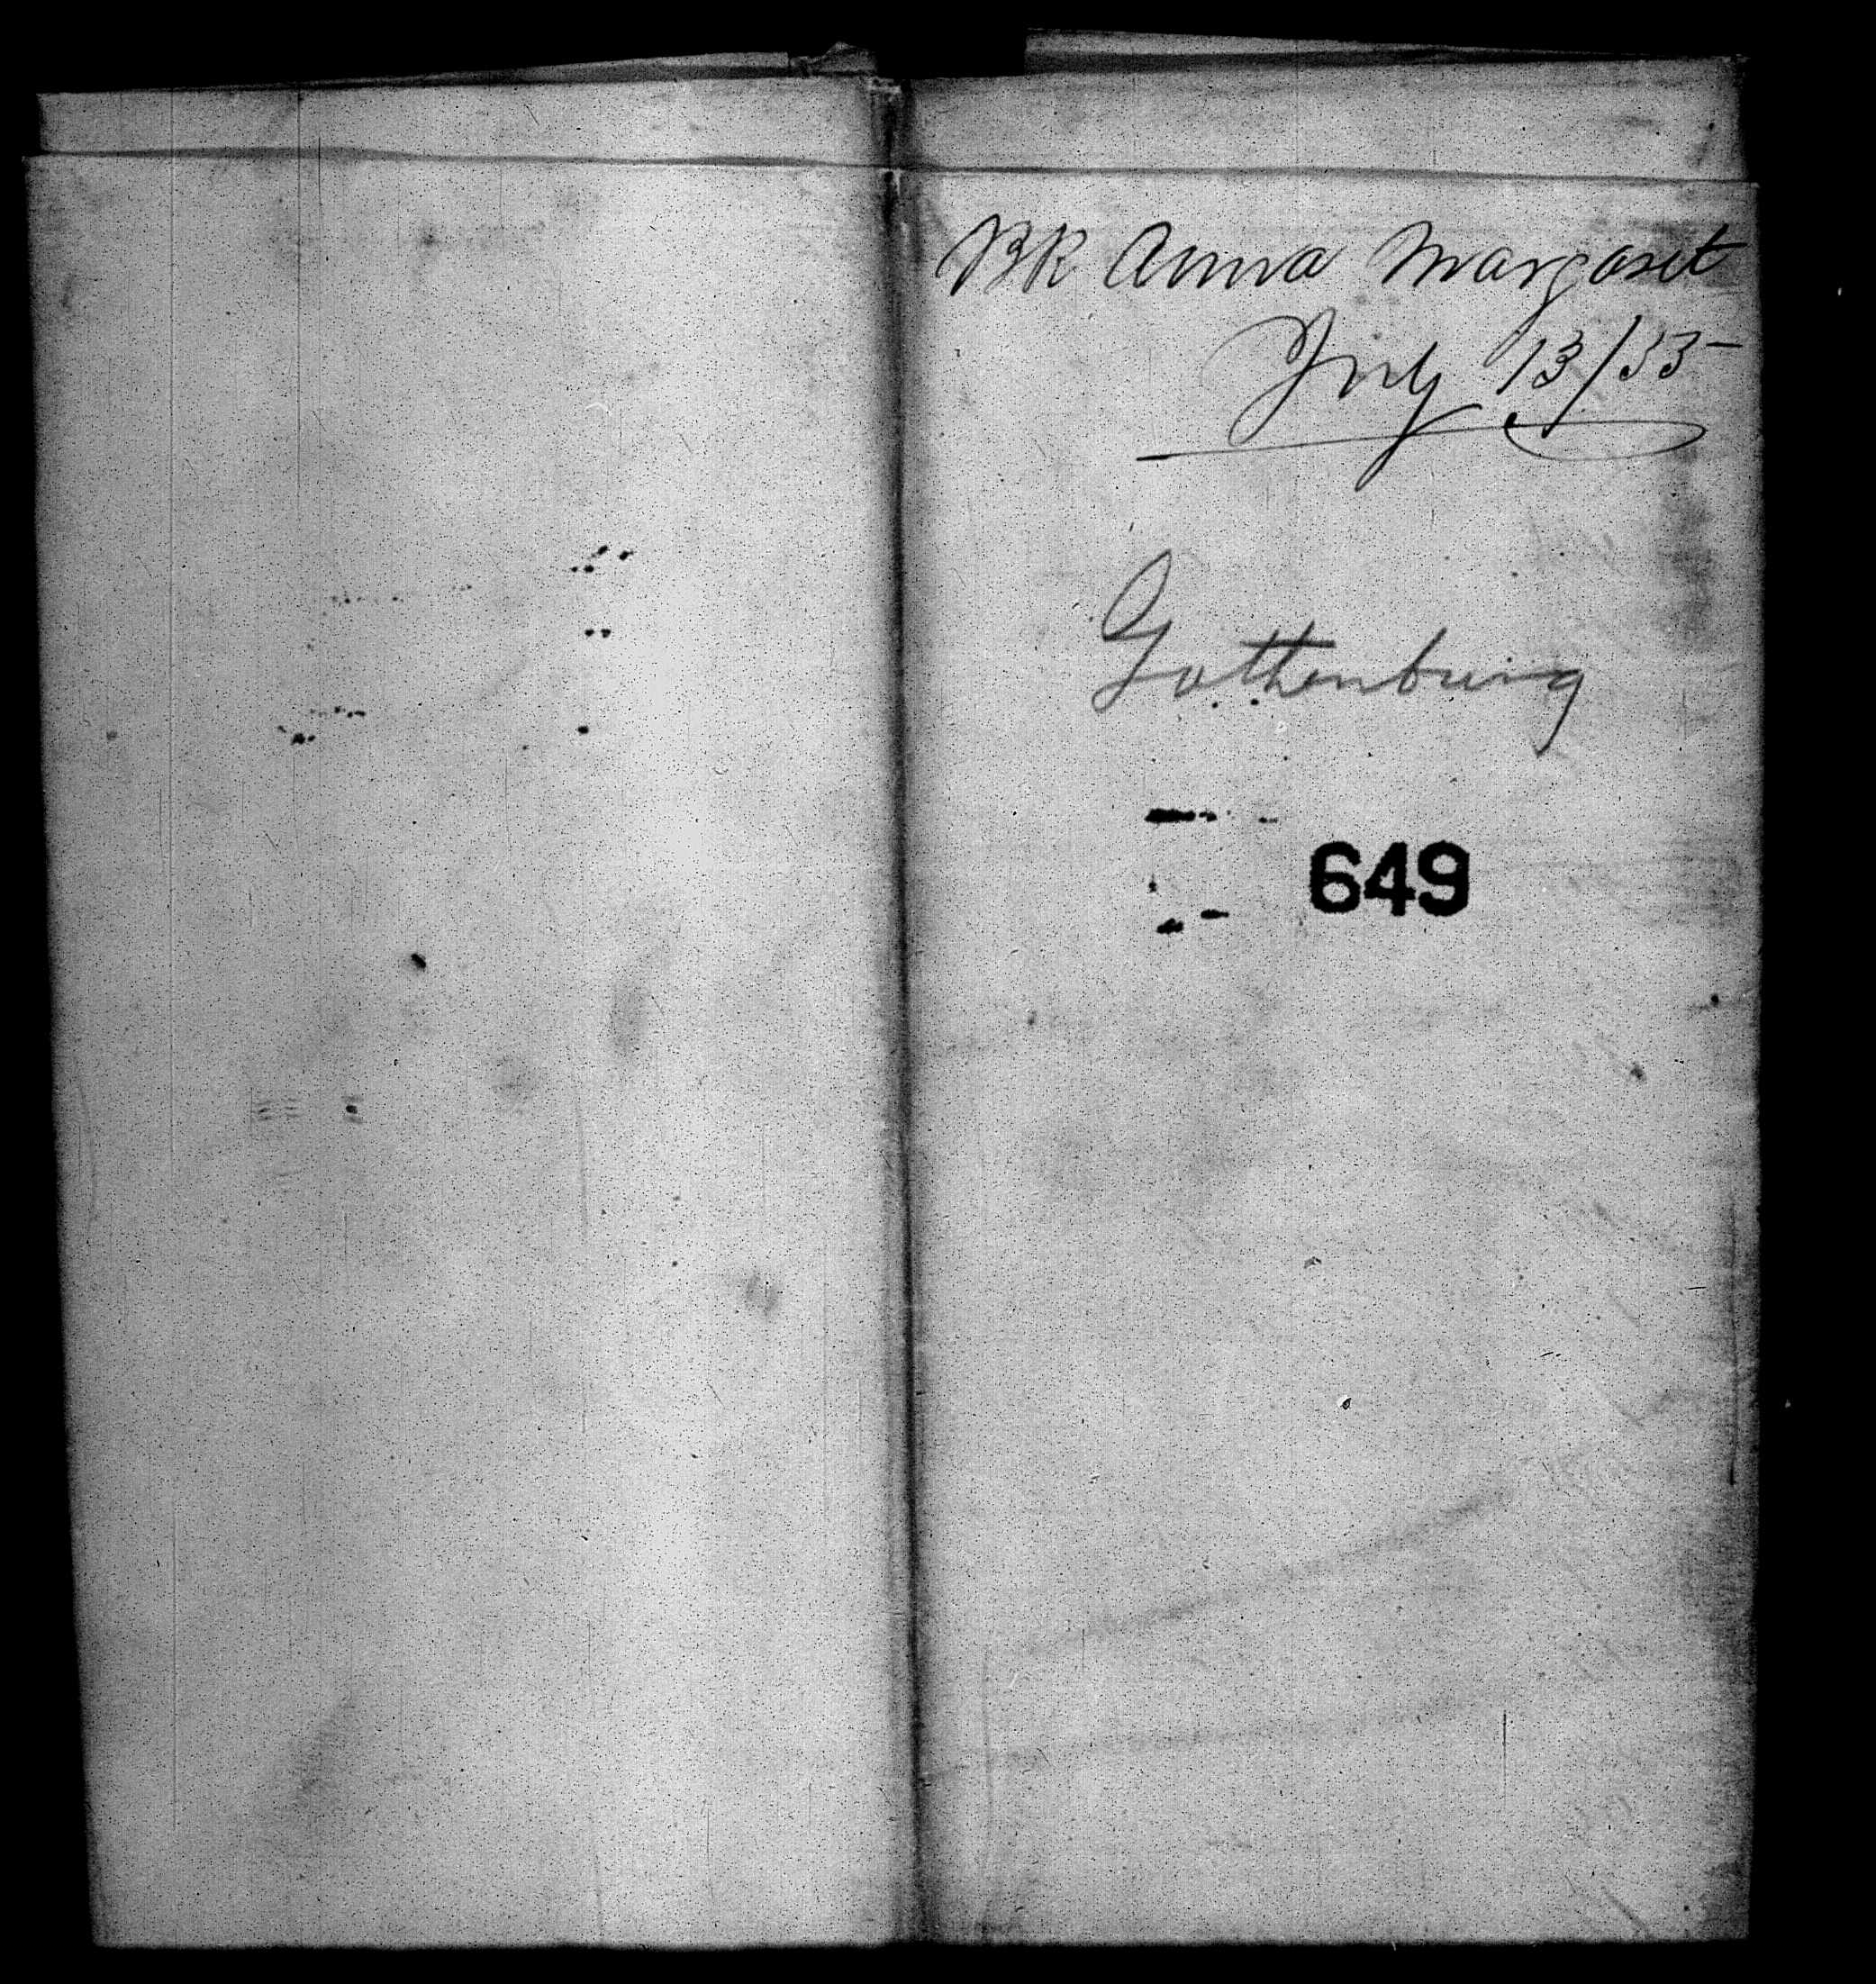 BK Anna Margaret
July 13/35
Gothenburg
649